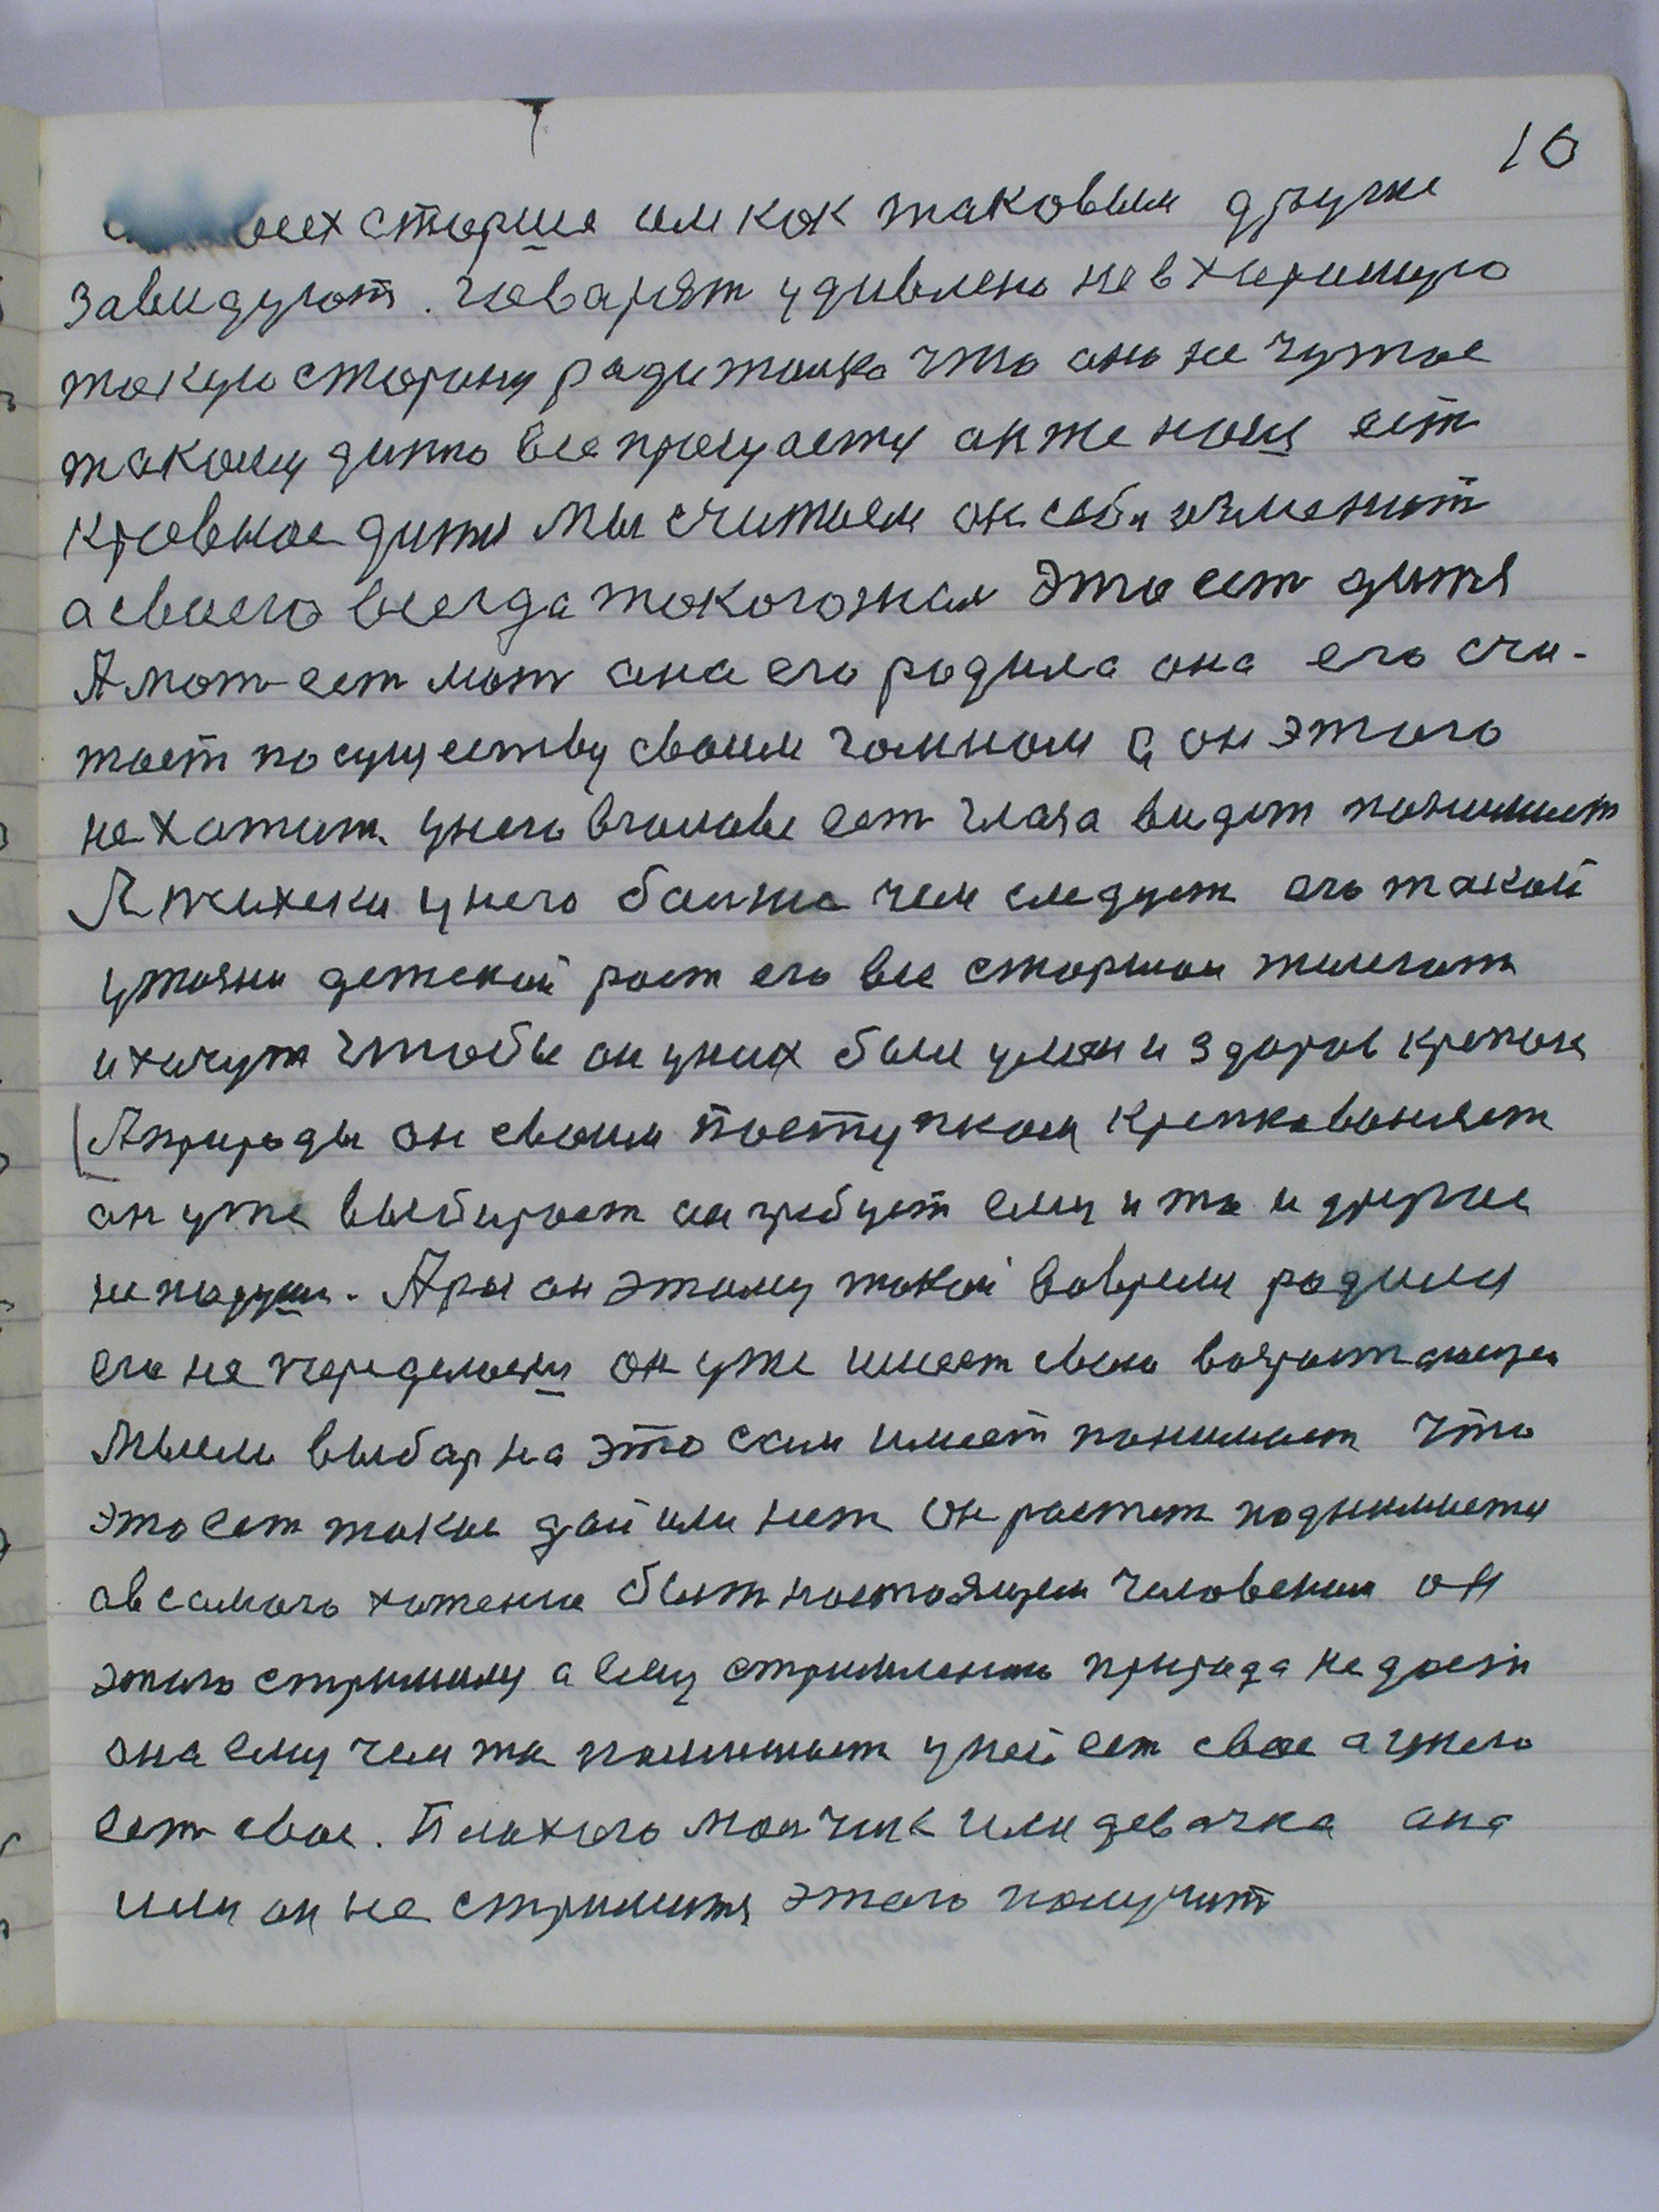 16
всех старше им как таковым другие
завидуют. говарят удивлено не в хорошую
такую сторону радитилка что оно не чужое
такому дитю все прощается он же наш ест
кровное дитя мы считаем он себя изменит
а своего всегда такогожал это ест дитя
А мат ест мат она его родила она его счи-
тает по существу своим гамном а он этого
не хатит у него в голове ест глаза видят понимает
А психики у него болше чем следует его такой
у жизни детской рост его все старшаи желают
и хочут чтобы он у них был умен и здоров крепок
А природы он своим поступкам крепко воняет
он уже выбирает он требует ему и то и другое
не подуш. А раз он этому такой вовремя родилси
его не переделаеш он уже имеет свою возрастающею
мысль выбар на это сам имеет понимает что
это ест такое дай или нет он растет поднимается
а в самого хотения быт настоящем человеком он
этого стримил а ему стримление природа не дает
она ему чем то помишает у ней ест свое а у него
ест свое. Плохого малчик или девачка она
или он не стримится этого получит